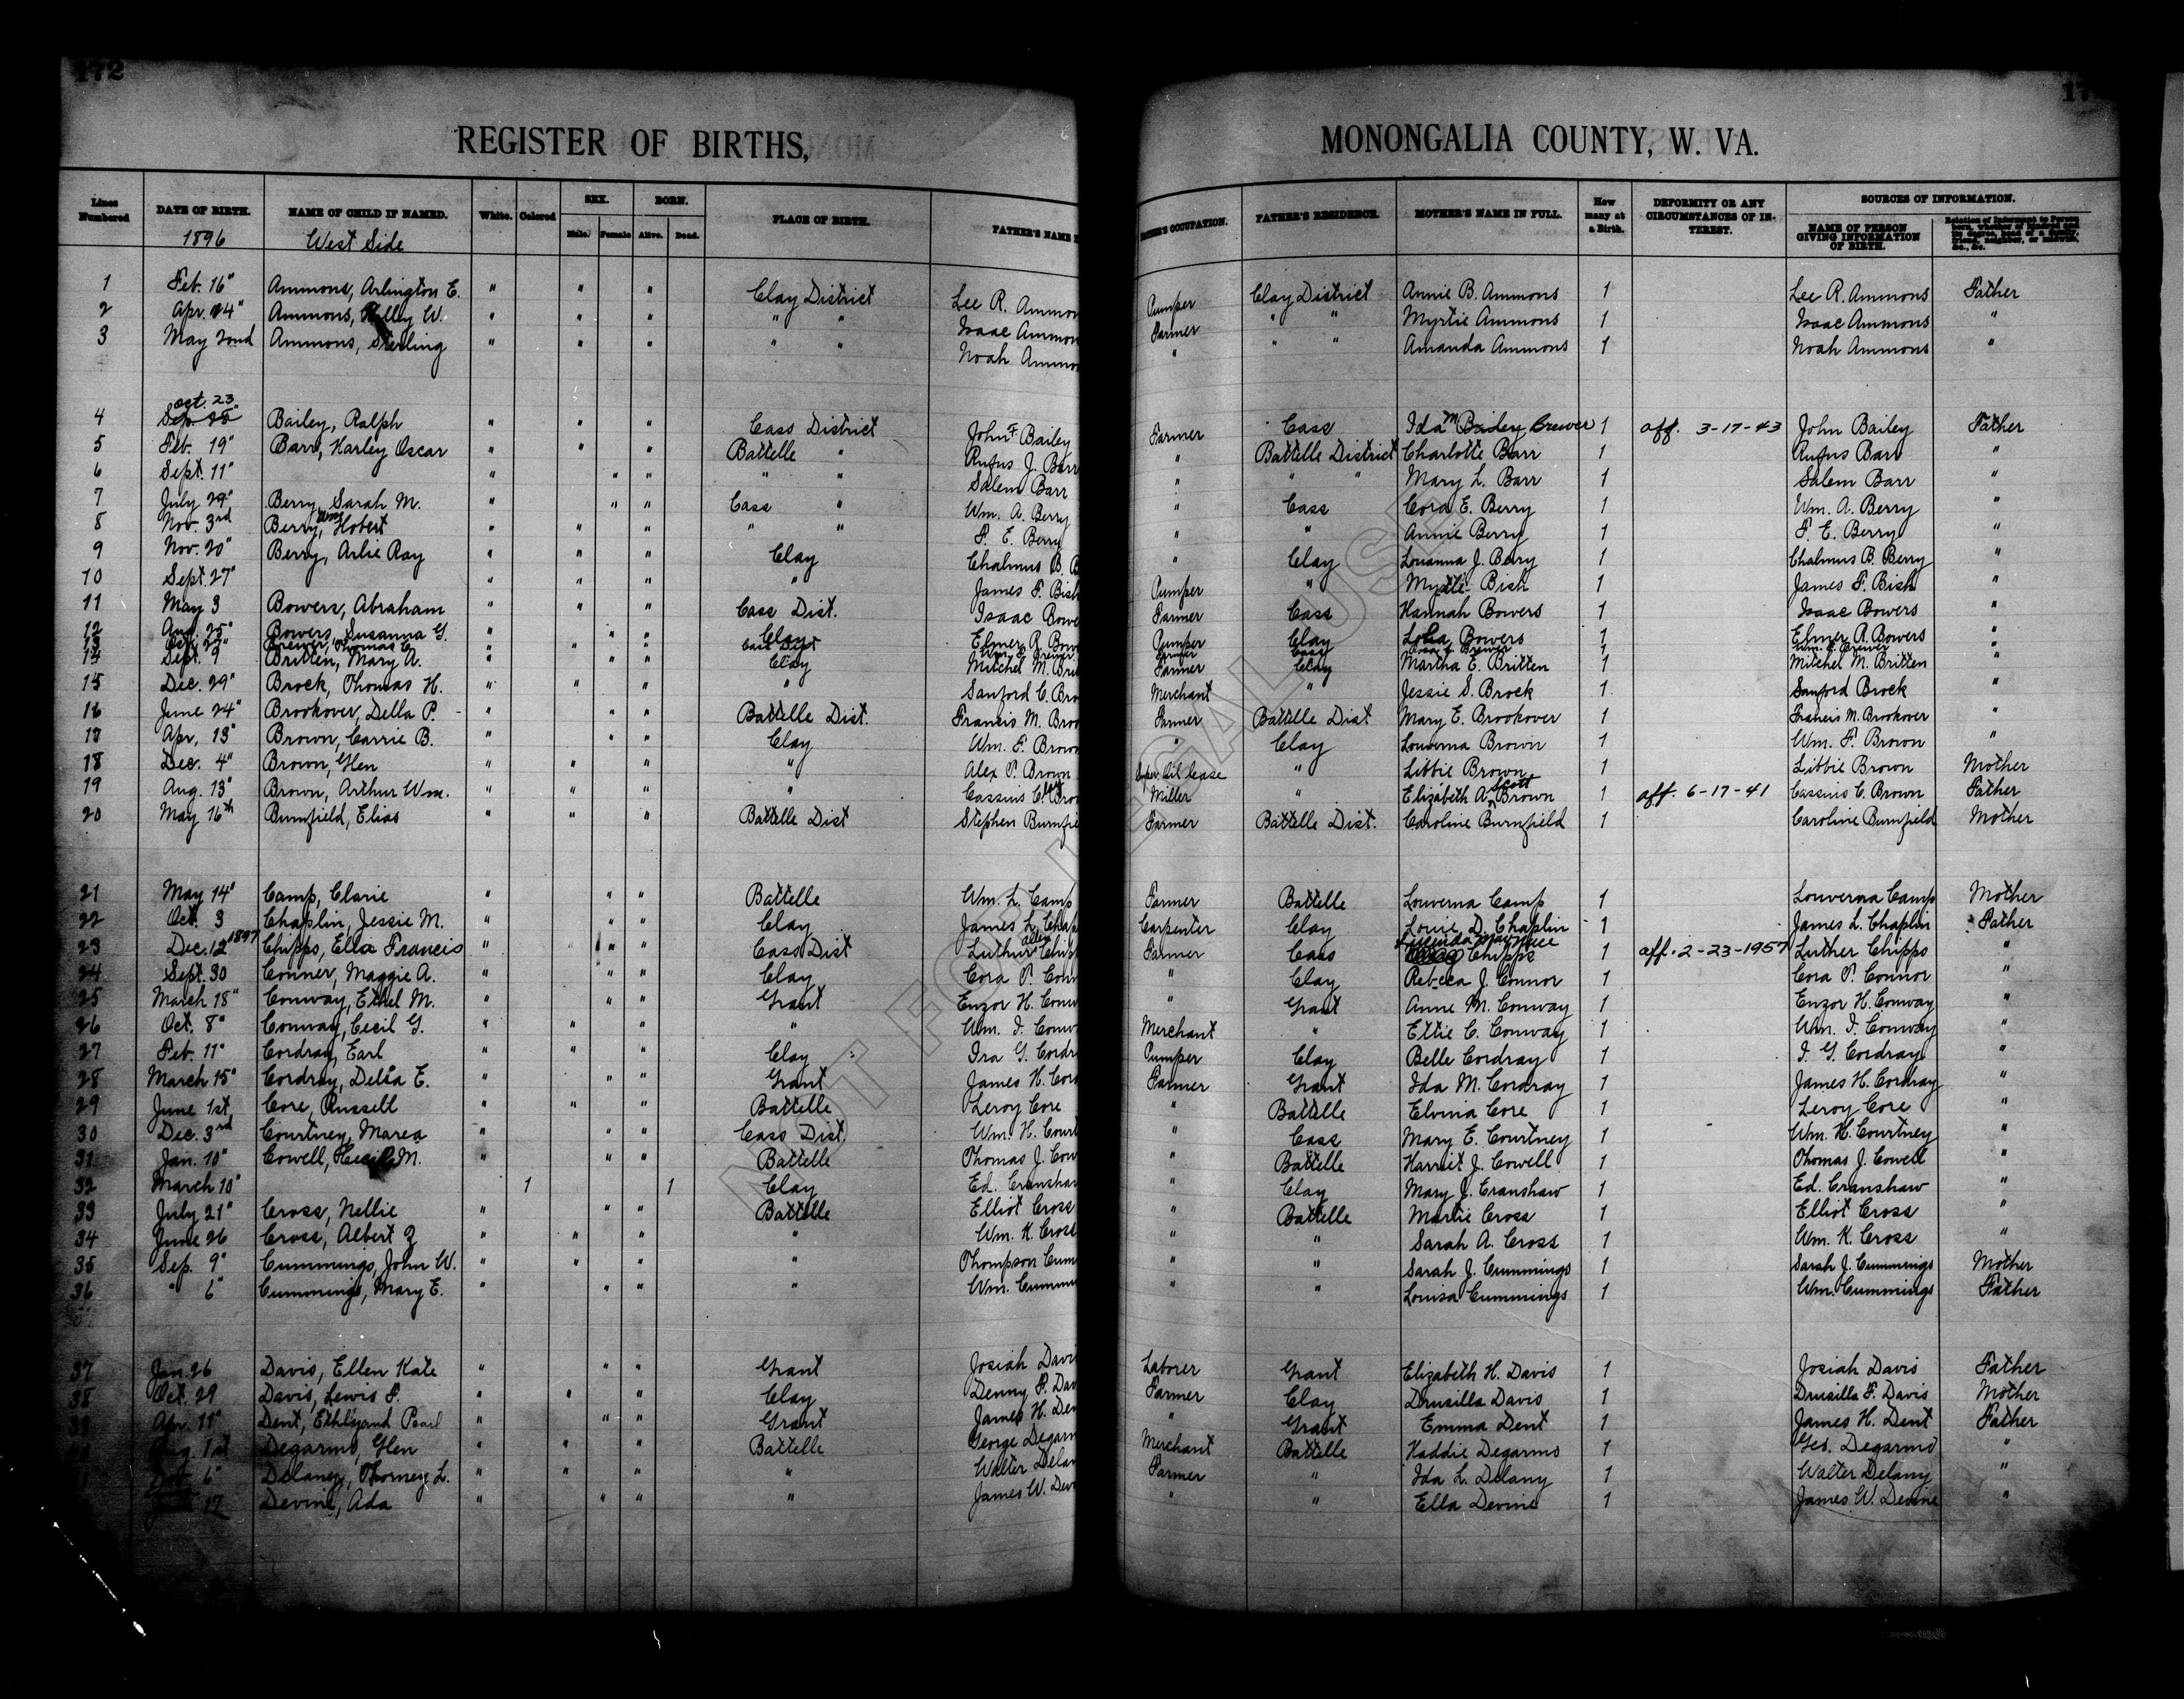 172
REGISTER OF BIRTHS, MONONGALIA COUNTY, W. VA.
Lines Numbered DATE OF BIRTH. NAME OF CHILD IF NAMED. White. Colored SEX. Male. Female BORN. Alive. Dead. PLACE OF BIRTH. FATHER'S NAME OCCUPATION. FATHER'S RESIDENCE. MOTHER'S NAME IN FULL. How many at a Birth. DEFORMITY OR ANY CIRCUMSTANCES OF INTEREST. SOURCES OF INFORMATION. NAME OF PERSON GIVING INFORMATION OF BIRTH. Relation of Informant to Person born, whether of kindred and the degree, head of a family, friend, neighbor, or midwife, &c., &c.
1896 West Side
1 Feb. 16" Ammons, Arlington E. " " " Clay District Lee R. Ammon Pumper Clay District Annie B. Ammons 1 Lee R. Ammons Father
2 Apr. 24" Ammons, W. " " " " " Isaac Ammon Farmer " " Myrtie Ammons 1 Isaac Ammons "
3 May 22nd Ammons, Sterling " " " " " Noah Ammo " " " Amanda Ammons 1 Noah Ammons "
oct. 23
4 Sep. 25" Bailey, Ralph " " " Cass District John F. Bailey Farmer Cass Ida M Bailey Brewer 1 aff. 3-17-43 John Bailey Father
5 Feb. 19" Barr, Harley Oscar " " " Battelle " Rufus J. Barr " Battelle District Charlotte Barr 1 Rufus Barr "
6 Sept. 11" " " " " " Salem Barr " " " Mary L. Barr 1 Salem Barr "
7 July 29" Berry, Sarah M. " " " Cass " Wm. A. Berry " Cass Cora E. Berry 1 Wm. A. Berry "
8 Nov. 3rd Berry, Wm. Hobert " " " " " F. E. Berry " " Annie Berry 1 F. E. Berry "
9 Nov. 20" Berry, Arlie Ray " " " Clay Chalmus B. B " Clay Louanna J. Berry 1 Chalmus B. Berry "
10 Sept. 27" " " " " James F. Bish Pumper " Myrtle Bish 1 James F. Bish "
11 May 3 Bowers, Abraham " " " Cass Dist. Isaac Bowe Farmer Cass Hannah Bowers 1 Isaac Bowers "
12 Aug. 25" Bowers, Susanna G. " " " Clay Elmer A. Bow Pumper Clay Bowers 1 Elmer A. Bowers "
13 Oct. 27" Brewer, Thomas C. " " " Cass Dist Farmer Cass Brewer 1 Wm. C. Brewer "
14 Sept. 9 Britten, Mary A. " " " Clay Mitchel M. Brit Farmer Clay Martha E. Britten 1 Mitchel M. Britten "
15 Dec. 29" Brock, Thomas H. " " " " Sanford C. Bro Merchant " Jessie S. Brock 1 Sanford Brock "
16 June 24" Brookover, Della P. " " " Battelle Dist. Francis M. Broo Farmer Battelle Dist Mary E. Brookover 1 Francis M. Brookover "
17 Apr. 13" Brown, Carrie B. " " " Clay Wm. F. Brown " Clay Louverna Brown 1 Wm. F. Brown "
18 Dec. 4" Brown, Glen " " " " Alex P. Brown Super. Oil lease " Libbie Brown 1 Libbie Brown Mother
19 Aug. 13" Brown, Arthur Wm. " " " " Cassius C. Bro Miller " Elizabeth A. Scott Brown 1 aff. 6-17-41 Cassius C. Brown Father
20 May 16th Bumfield, Elias " " " Battelle Dist Stephen Bumfie Farmer Battelle Dist. Caroline Bumfield 1 Caroline Bumfield Mother
21 May 14" Camp, Clarie " " " Battelle Wm. L. Camp Farmer Battelle Louverna Camp 1 Louverna Camp Mother
22 Oct. 3 Chaplin, Jessie M. " " " Clay James L. Chap Carpenter Clay Louie D. Chaplin 1 James L. Chaplin Father
23 Dec. 12" 1897 Chipps, Ella Francis " " " Cass Dist Luther Allen Chip Farmer Cass Lucinda May Chipps 1 aff. 2-23-1957 Luther Chipps "
24 Sept. 30 Conner, Maggie A. " " " Clay Cora P. Con " Clay Rebecca J. Connor 1 Cora P. Connor "
25 March 18" Conway, Ethel M. " " " Grant Enzor H. Conw " Grant Anne M. Conway 1 Enzor H. Conway "
26 Oct. 8" Conway, Cecil G. " " " " Wm. I. Conw Merchant " Ettie C. Conway 1 Wm. I. Conway "
27 Feb. 11" Cordray, Earl " " " Clay Ira G. Cordr Pumper Clay Belle Cordray 1 I. G. Cordray "
28 March 15" Cordray, Delia E. " " " Grant James H. Cor Farmer Grant Ida M. Cordray 1 James H. Cordray "
29 June 1st Core, Russell " " " Battelle Leroy Core " Battelle Elvina Core 1 Leroy Core "
30 Dec. 3rd Courtney, Marea " " " Cass Dist. Wm. H. Court " Cass Mary E. Courtney 1 Wm. H. Courtney "
31 Jan. 10" Cowell, M. " " " Battelle Thomas J. Cow " Battelle Harriet J. Cowell 1 Thomas J. Cowell "
32 March 10" 1 1 Clay Ed. Cranshaw " Clay Mary J. Cranshaw 1 Ed. Cranshaw "
33 July 21" Cross, Nellie " " " Battelle Elliot Cross " Battelle Martie Cross 1 Elliot Cross "
34 June 26 Cross, Albert Z " " " " Wm. K. Cross " " Sarah A. Cross 1 Wm. K. Cross "
35 Sep. 9" Cummings, John W. " " " " Thompson Cum " " Sarah J. Cummings 1 Sarah J. Cummings Mother
36 " 6" Cummings, Mary E. " " " " Wm. Cumm " " Louisa Cummings 1 Wm. Cummings Father
37 Jan. 26 Davis, Ellen Kate " " " Grant Josiah Davi Laborer Grant Elizabeth H. Davis 1 Josiah Davis Father
38 Oct. 29 Davis, Lewis F. " " " Clay Denny F. Dav Farmer Clay Drusilla Davis 1 Drusilla F. Davis Mother
39 Apr. 11" Dent, Pearl " " " Grant James H. Den " Grant Emma Dent 1 James H. Dent Father
Aug. 1st Degarmo, Glen " " " Battelle George Degarm Merchant Battelle Haddie Degarmo 1 Geo. Degarmo "
6" Delaney, Thorney L. " " " " Walter Delan Farmer " Ida L. Delany 1 Walter Delany "
17 Devine, Ada " " " " James W. Dev " " Ella Devine 1 James W. Devine "
NOT FOR LEGAL USE